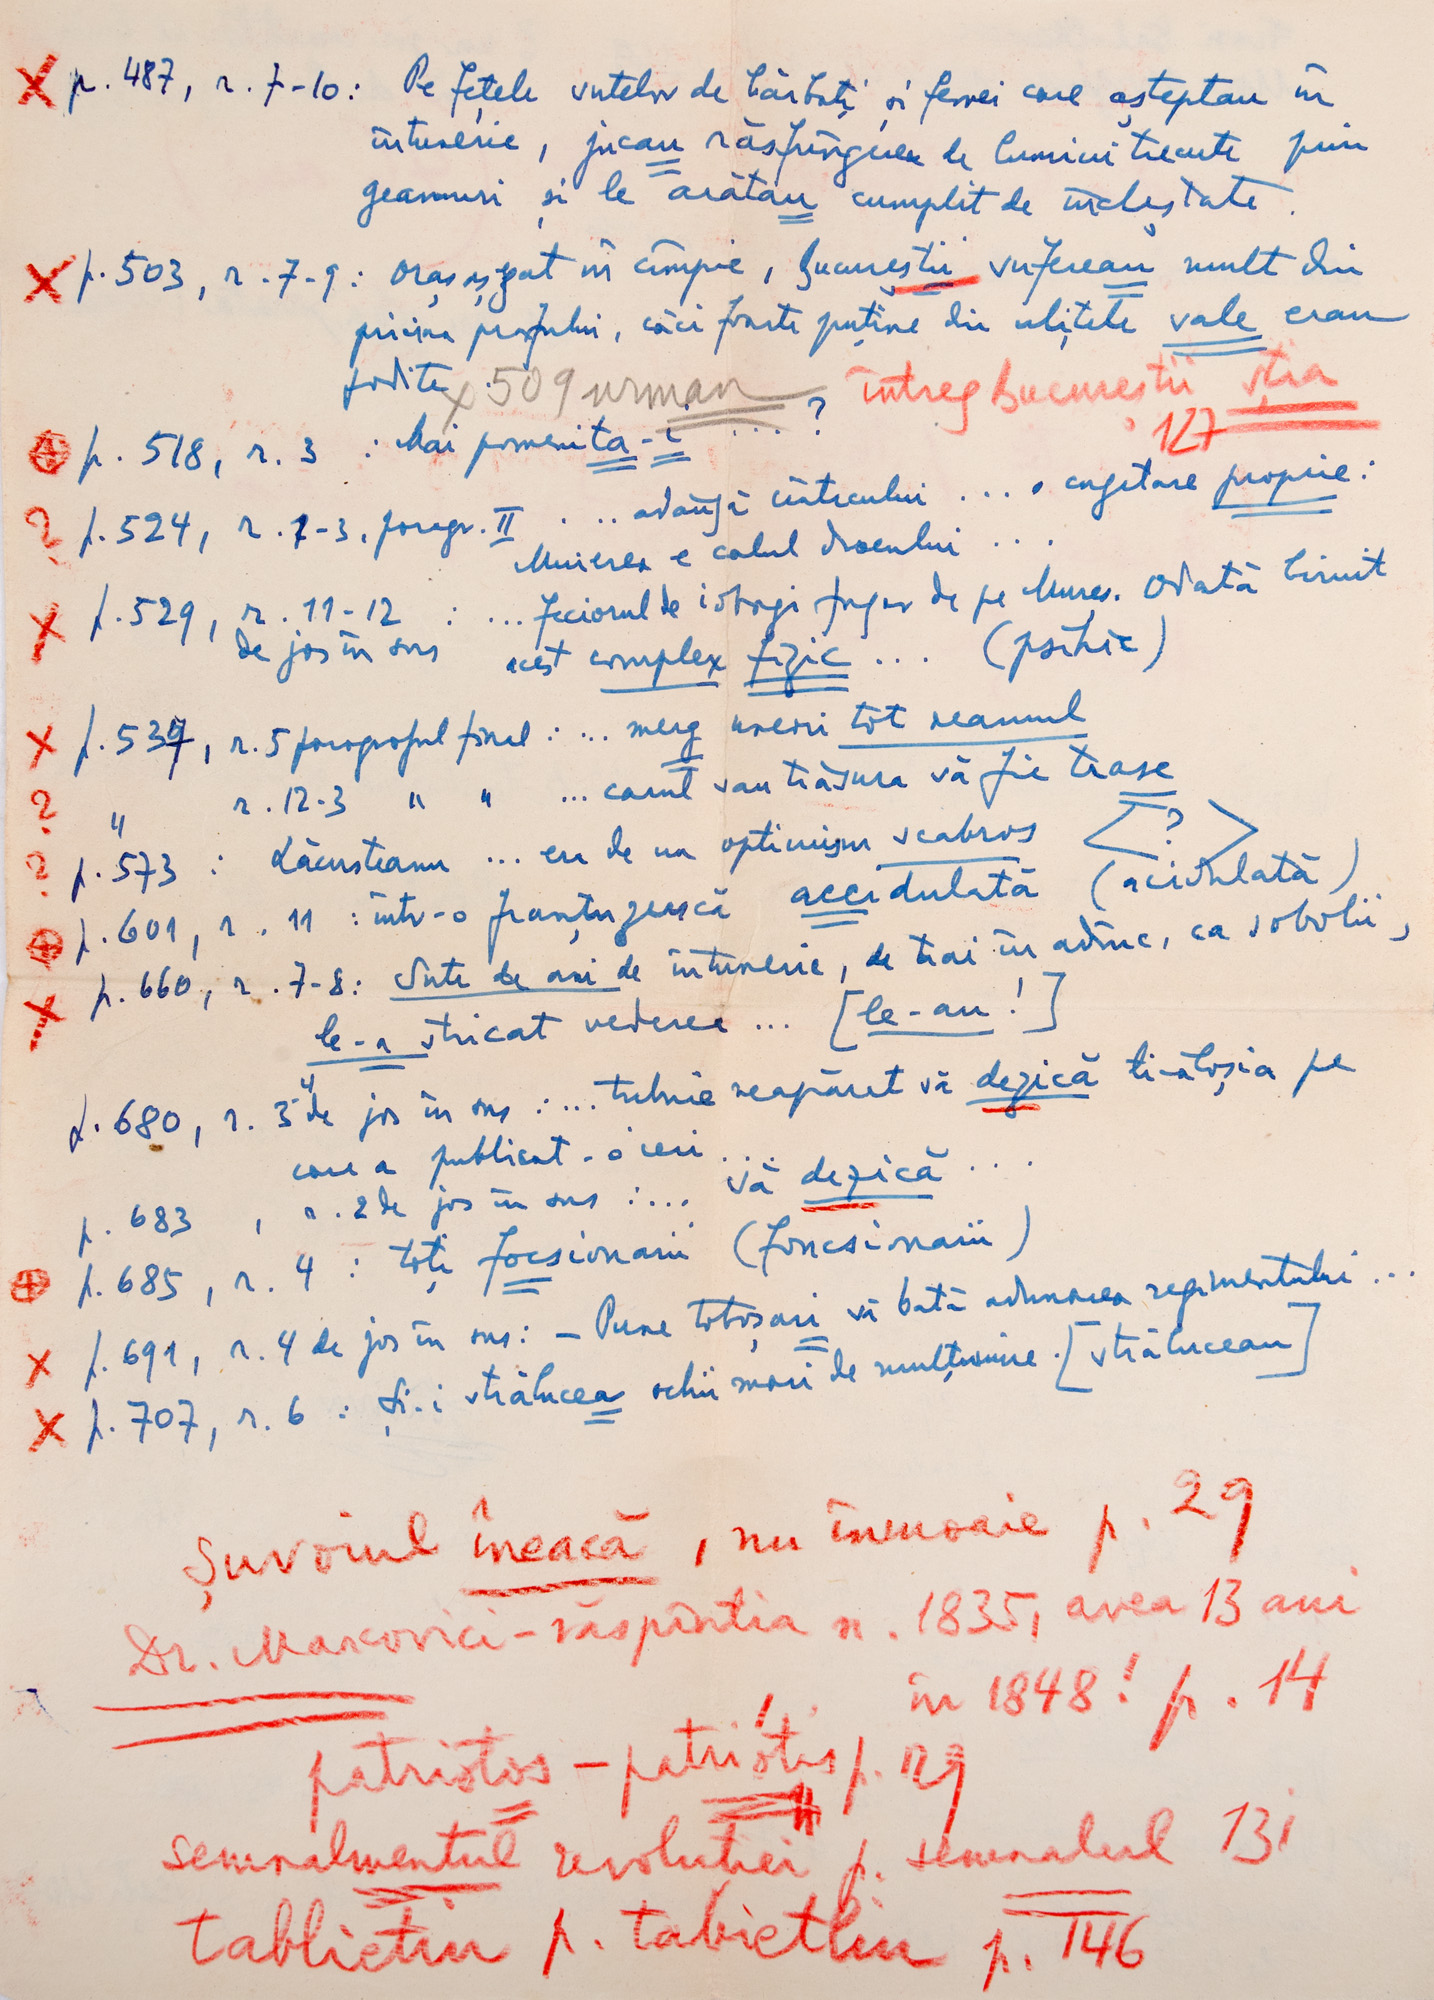 x p. 487, r. 7-10: Pe fețele sutelor de bărbați și femei care așteptau în
întuneric, jucau răsfrîngerea de lumini trecute prin
geamuri și le arătau cumplit de încleștate.
x p. 503, r. 7-9: oraș așezat în cîmpie, Bucureștii sufereau mult din
pricina prafului, căci foarte puține din ulițele sale erau
podite.
x 509 urman întreg Bucureștii știa
127
p. 518, r. 3 : Mai pomenita-i ...?
? p. 524, r. 1-3, paragr. II ... adaugă cîntecului ... o cugetare proprie:
Muierea e calul dracului ...
x p. 529, r. 11-12 : ... feciorul de iobagi fugar de pe Mureș. Odată biruit
de jos în sus acest complex fizic ... (psihic)
x p. 537, r. 5 paragraful final : ... merg uneori tot neamul
? " r. 12-3 " " ... carul sau trăsura să fie trase
? p. 573 : Lăcusteanu ... era de un optimism scabros <?>
p. 601, r. 11 : într-o franțuzească accidulată (acidulată)
x p. 660, r. 7-8: Sute de ani de întuneric, de trai în adînc, ca sobolii,
le-a stricat vederea ... [le-au!]
p. 680, r. 3-4 de jos în sus : ... trebuie neapărat să dezică ticăloșia pe
care a publicat-o ieri ...
p. 683, r. 2 de jos în sus : ... să dezică ...
p. 685, r. 4 : toți focsionarii (foncsionarii)
x p. 691, r. 4 de jos în sus: – Pune toboșari să bată adunarea regimentului ...
x p. 707, r. 6 : Și-i strălucea ochii mari de mulțumire. [străluceau]
Șuvoiul îneacă, nu înmoaie p. 29
Dr. Marcovici-răspîntia n. 1835, avea 13 ani
în 1848! p. 14
patriotos – patriótis p. 129
semnalmentul revoluției p. semnalul 131
tablietin p. tabietliu p. 146